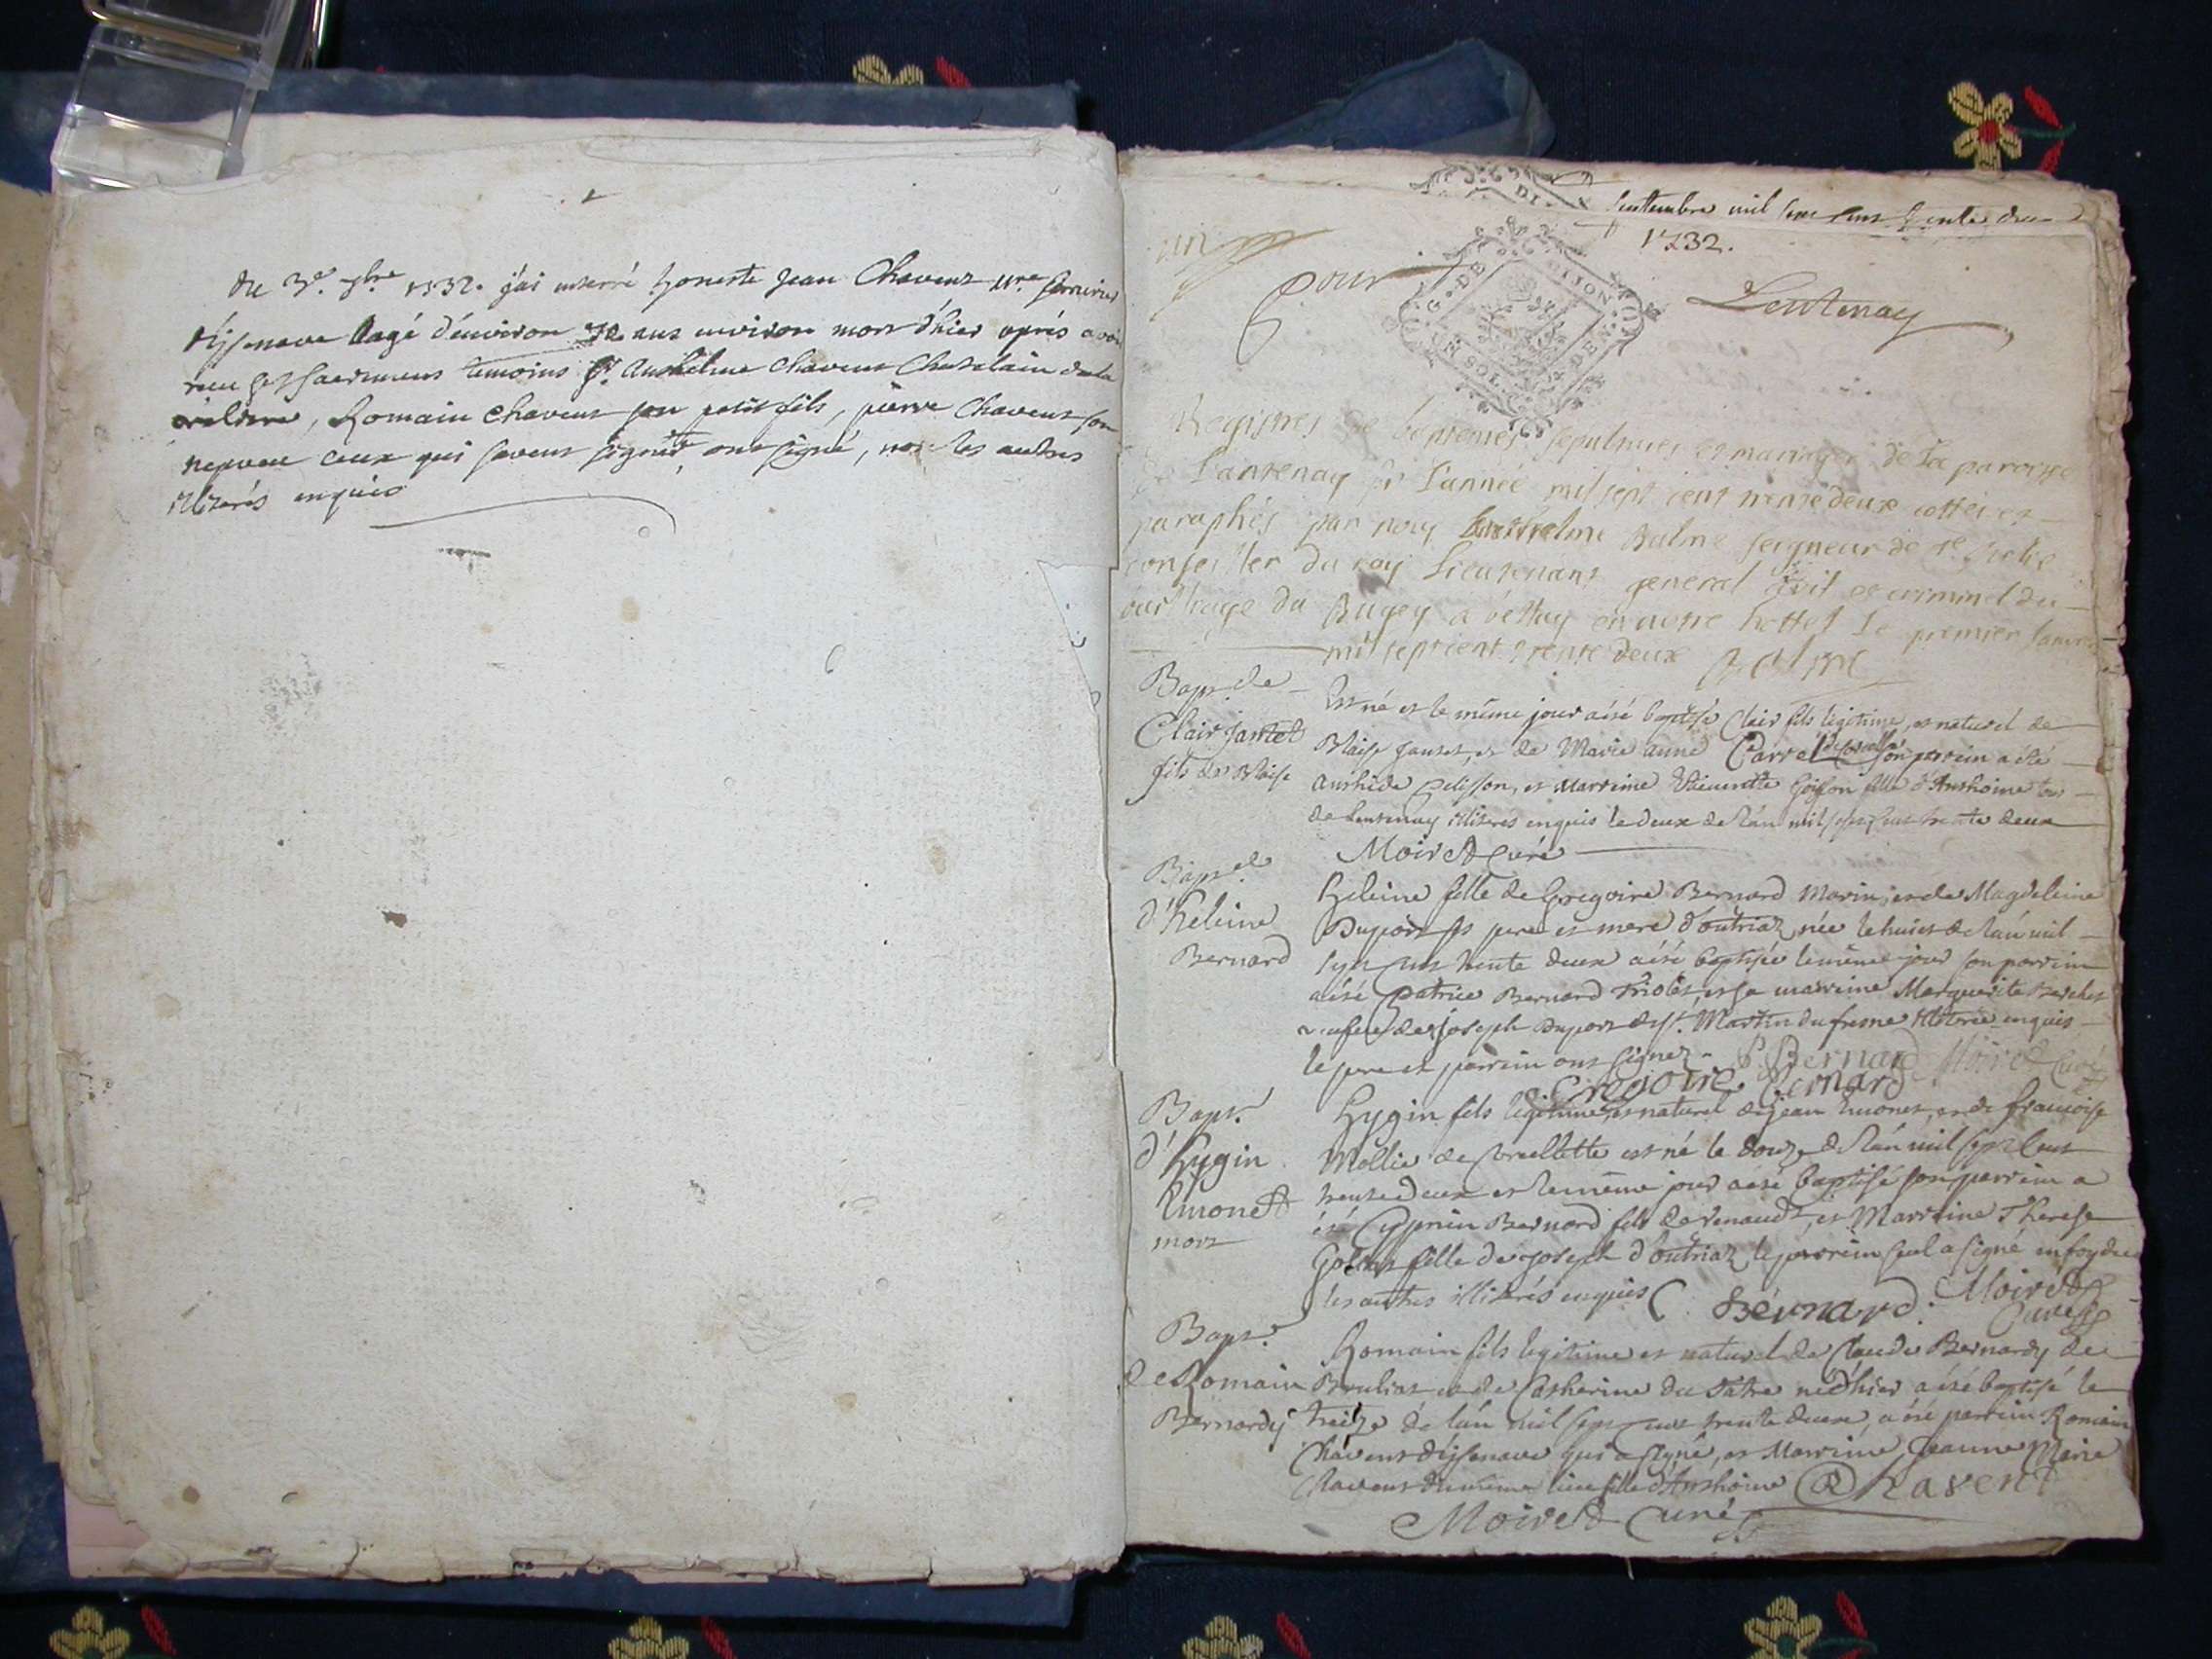 du 3e. 7bre 1732. j'ai enterré honeste Jean Chavent mre
d'Issenave âagé d'environ 70 ans environ mort d'hier après avoir
receu ses sacremens temoins Sr. Anthelme Chavent Chatelain de la
, Romain Chavent son petit fils, pierre Chavent son
nepveu ceux qui savent signer ont signé, non les autres
illiterés enquis
Septembre mil sept cens trente deux
1732.
un
pour
Lentenay
G. DE DIJON
UN SOL
Registres de bâptemes sepultures et mariages de la paroisse
de Lantenay pr L'année mil sept cent trente deux cottés et
paraphés par nous Anthelme Balme seigneur de Ste
conseiller du roy Lieutenant general civil et criminel du
bailliage du Bugey à belley en nostre hostel Le premier Janvier
mil sept cent trente deux Balme
Bapt. de
Clair Jantet
fils de Blaise
Est né et le même jour a été baptisé Clair fils legitime, et naturel de
Blaise Jantet, et de Marie anne Carrel son parrein a été
Pelisson, et Marrine Goiffon fille d'Anthoine tous
de Lentenay illiterés enquis le deux de l'an mil sept cens trente deux
Moiret Curé
Bapt. de
d'heleine
Bernard
heleine fille de Gregoire Bernard Marin, et de Magdeleine
Duport ses pere et mere d'outriaz née le huict de l'an mil
sept cens trente deux a été baptisée le même jour son parrein
a été patrice Bernard Triolet, et sa marrine Marguerite Berchet
veufve de joseph Duport de St. Martin du fresne illiterée enquis
le pere et parrein ont signez. P. Bernard Moiret Curé
Gregoire Bernard
Bapt.
d'hygin
Emonet
mort
hygin fils legitime, et naturel de jean Emonet, et de francoise
Mollie de est né le douze de l'an mil sept cens
trente deux et le même jour a été baptisé son parrein a
été Cyprien Bernard fils de renaud, et Marrine Therese
fille de joseph d'outriaz, le parrein seul a signé en foy de
les autres illiterés enquis C. Bernard. Moiret
Curé
Bapt.
de Romain
Bernardy
Romain fils legitime et naturel de Claude Bernardy de
et de Catherine du né d'hier a été baptisé le
treize de l'an mil sept cens trente deux, a été parrein Romain
Chavent d'Issenave qui a signé, et Marrine, Jeanne Marie
Chavent du même lieu fille d'Anthoine R Chavent
Moiret Curé